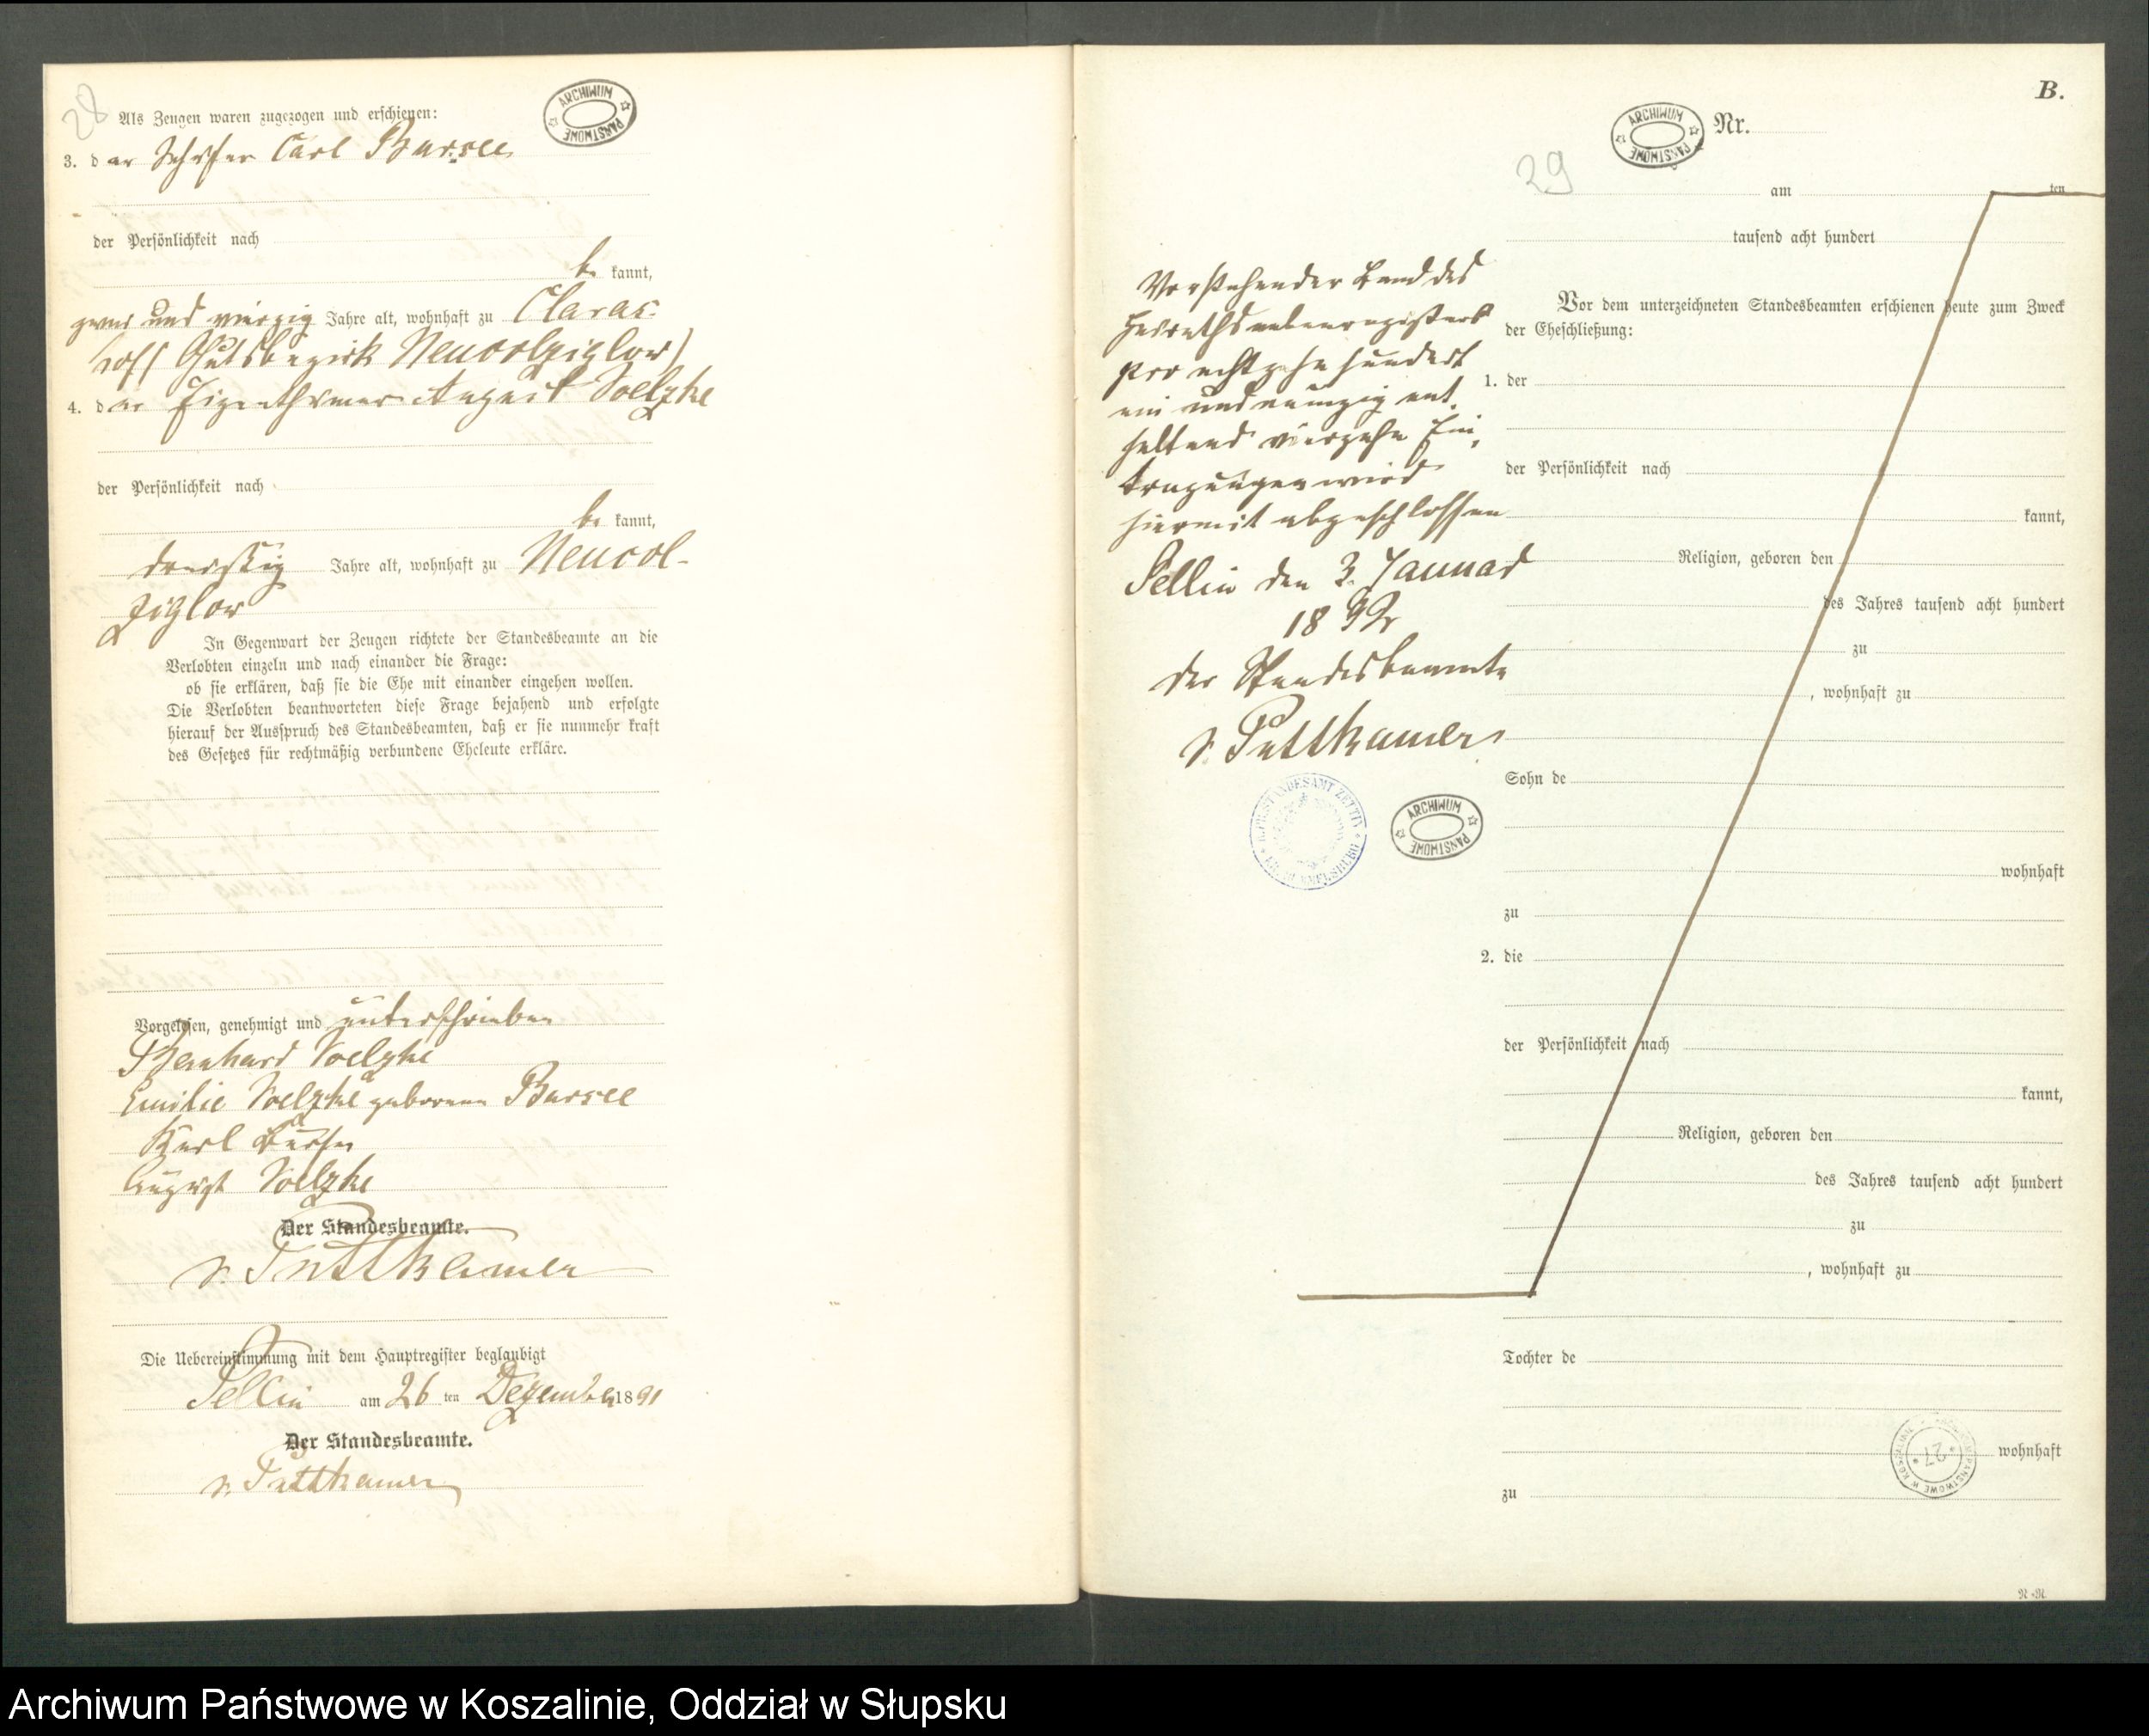 28
Als Zeugen waren zugezogen und erschienen:
3. der Schäfer Carl Bussee
der Persönlichkeit nach
be kannt,
zwei und vierzig Jahre alt, wohnhaft zu Claras-
hof (Gutsbezirk Neucolziglow)
4. der Eigenthümer August Voelzke
der Persönlichkeit nach
be kannt,
dreißig Jahre alt, wohnhaft zu Neucol-
ziglow
In Gegenwart der Zeugen richtete der Standesbeamte an die
Verlobten einzeln und nach einander die Frage:
ob sie erklären, daß sie die Ehe mit einander eingehen wollen.
Die Verlobten beantworteten diese Frage bejahend und erfolgte
hierauf der Ausspruch des Standesbeamten, daß er sie nunmehr kraft
des Gesetzes für rechtmäßig verbundene Eheleute erkläre.
Vorgelesen, genehmigt und unterschrieben
Bernhard Voelzke
Emilie Voelzke geborene Bussee
Karl
August Voelzke
Der Standesbeamte.
v. Puttkamer
Die Uebereinstimmung mit dem Hauptregister beglaubigt
Sellin am 26 ten Dezember 1891
Der Standesbeamte.
v. Puttkamer
ARCHIWUM PAŃSTWOWE
B.
ARCHIWUM PAŃSTWOWE
Nr.
29
am ten
tausend acht hundert
Vor dem unterzeichneten Standesbeamten erschienen heute zum Zweck
der Eheschließung:
1. der
der Persönlichkeit nach
kannt,
Religion, geboren den
des Jahres tausend acht hundert
zu
, wohnhaft zu
Sohn de
wohnhaft
zu
2. die
der Persönlichkeit nach
kannt,
Religion, geboren den
des Jahres tausend acht hundert
zu
, wohnhaft zu
Tochter de
wohnhaft
zu
Vorstehender Band des
Heirathsnebenregisters
pro achtzehnhundert
ein und neunzig ent-
haltend vierzehn Ein-
tragungen wird
hiermit abgeschlossen
Sellin den 3. Januar
1892
Der Standesbeamte
v. Puttkamer
STANDESAMT ZETTIN
ARCHIWUM PAŃSTWOWE
27
Archiwum Państwowe w Koszalinie, Oddział w Słupsku